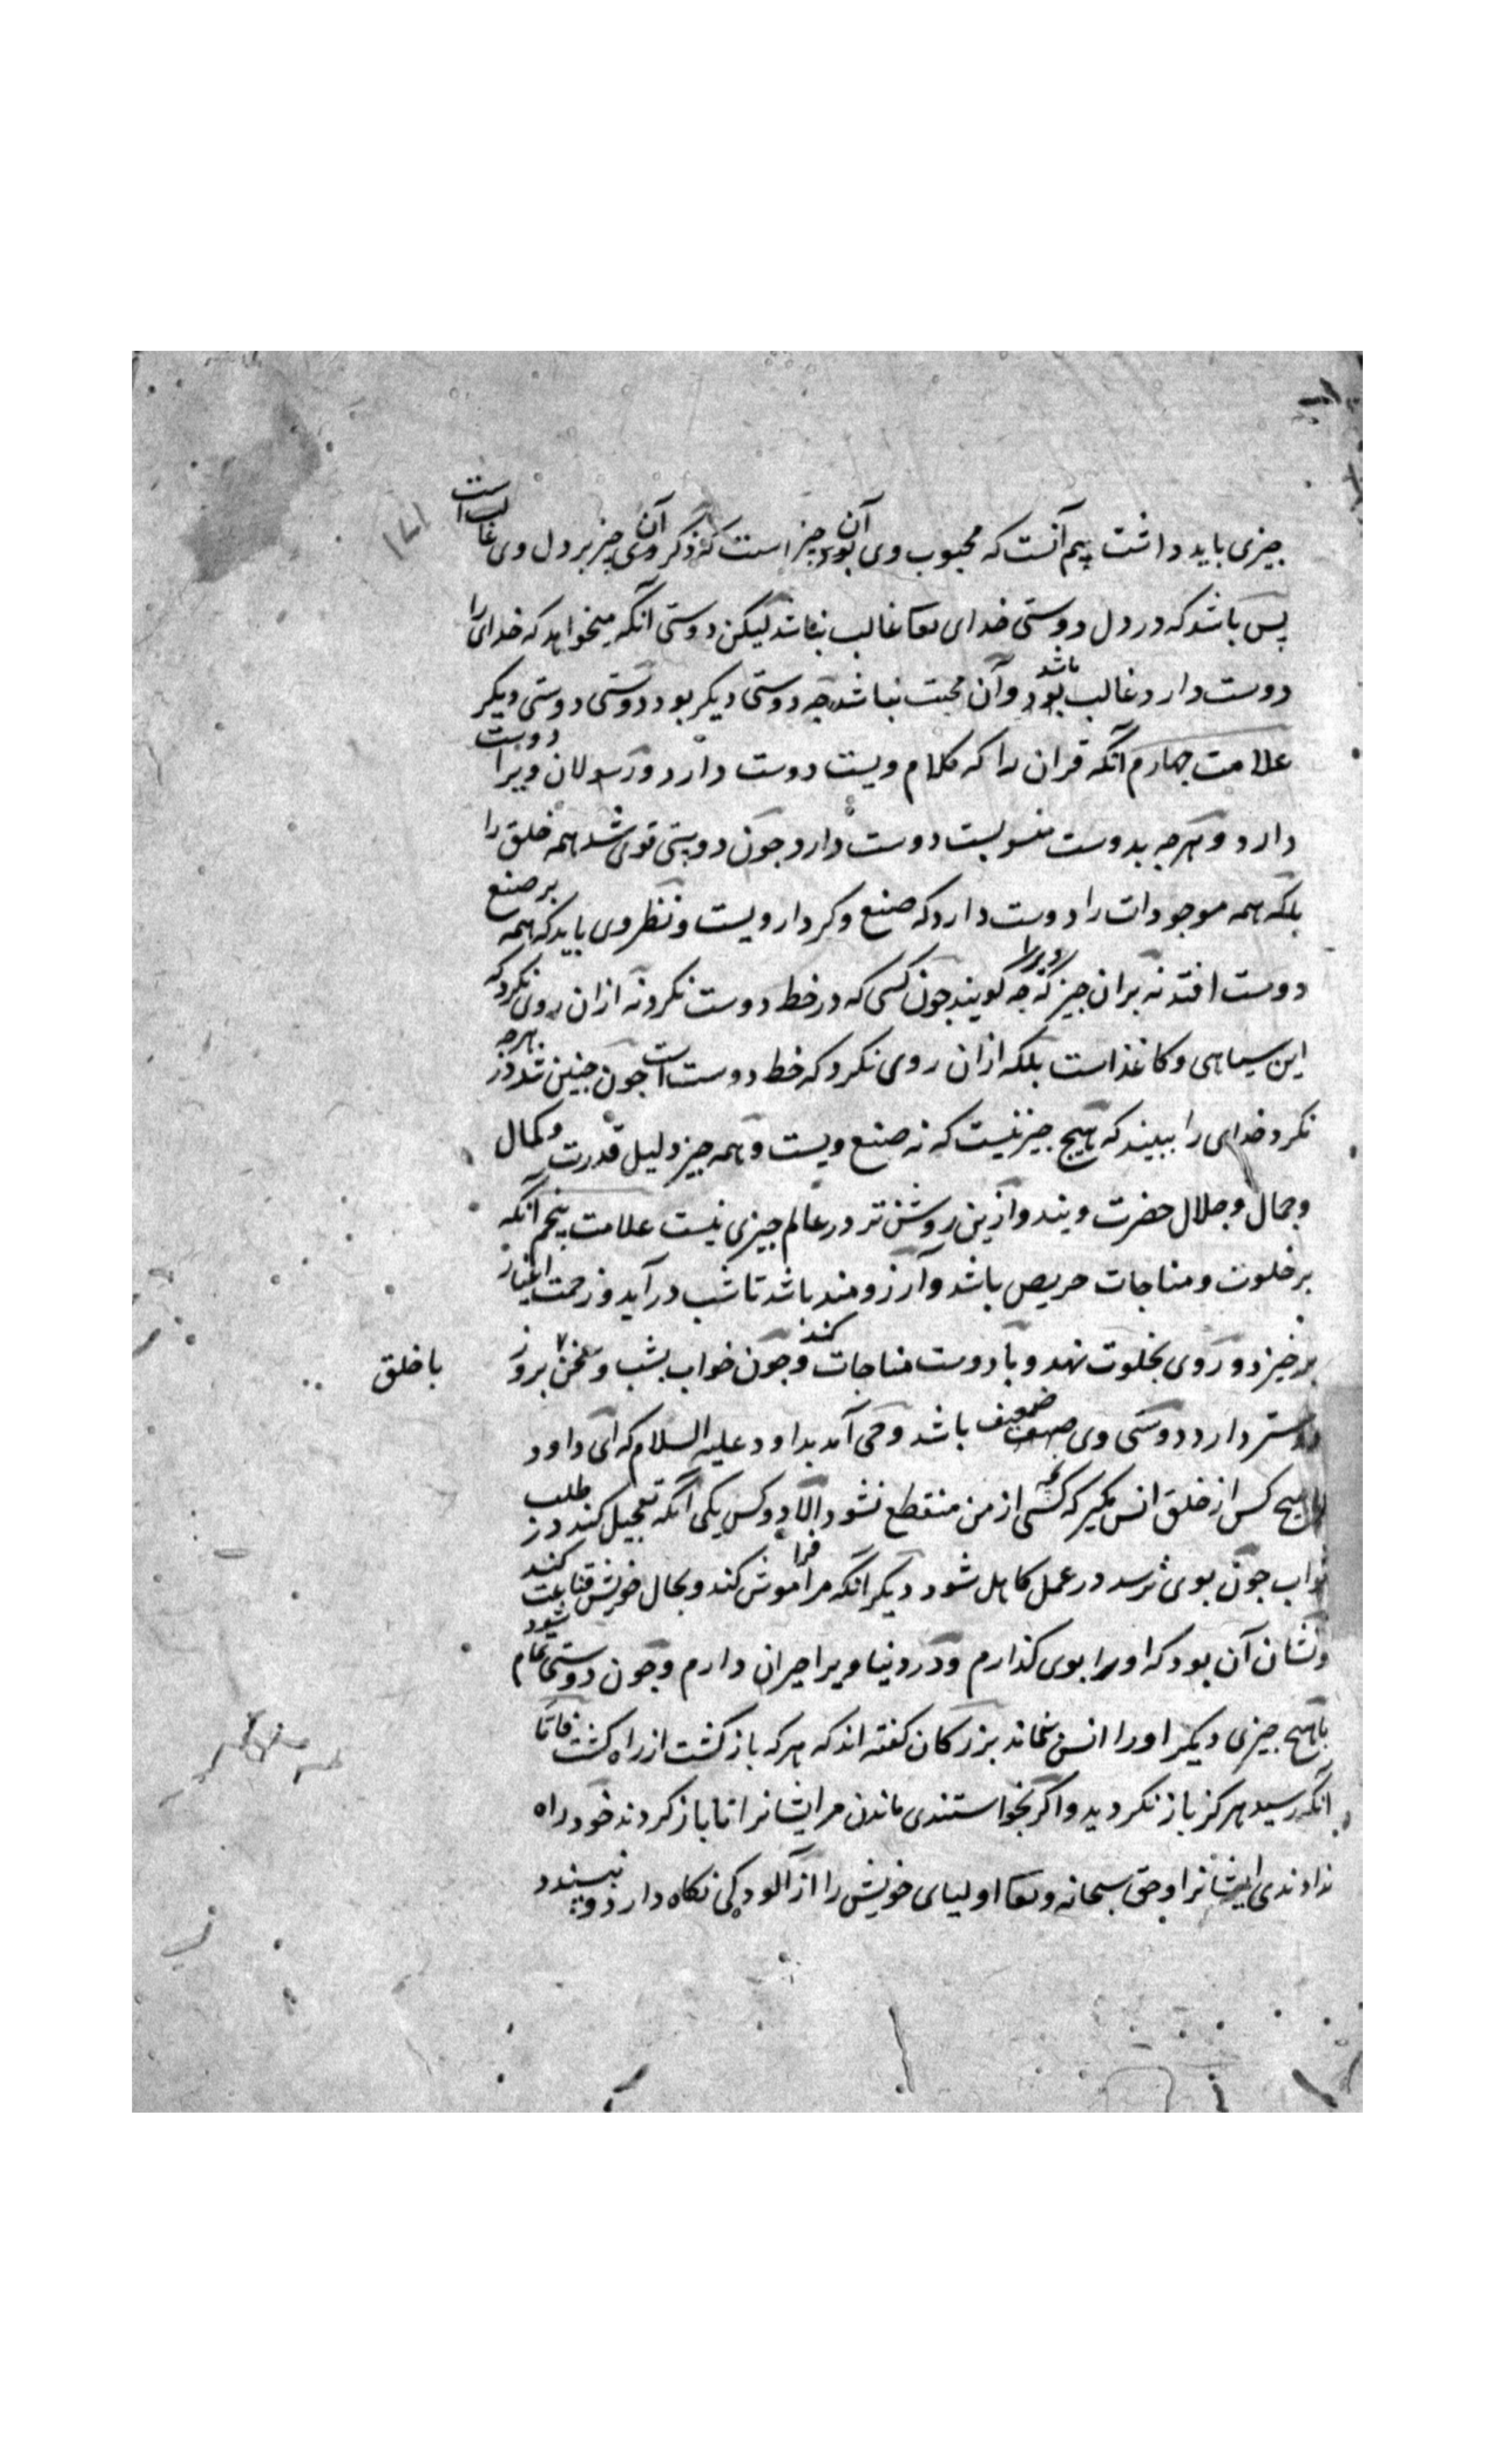 چیزی باید داشت بیم آنست که محبوب وی آن چیز است که ذکر آن چیز بر دل وی غالب است
پس باشد که در دل دوستی خدای تعا غالب نباشد لیکن دوستی آنکه میخواهد که خدای را
دوست دارد غالب باشد و آن محبت نباشد چه دوستی دیکر بود و دوستی دوستی دیکر
علامت چهارم آنکه قران را که کلام ویست دوست دارد و رسولان ویرا دوست
دارد و هرچه بدوست منسوبست دوست دارد چون دوستی قوی شد همه خلق را
بلکه همه موجودات را دوست دارد که صنع و کردار ویست و نظر وی باید که همه بر صنع
دوست افتد نه بران چیز که چه کویند چون کسی که در خط دوست نکرد نه ازان روی نکرد که
این سیاهی و کاغذ است بلکه ازان روی نکرد که خط دوست است چون چنین شد در هرچه
نکرد خدای را ببیند که هیچ چیز نیست که نه صنع ویست و همه چیز دلیل قدرت و کمال
و جمال و جلال حضرت ویند و ازین روشن تر در عالم چیزی نیست علامت پنجم آنکه
بر خلوت و مناجات حریص باشد و آرزومند باشد تا شب در آید و زحمت اغیار
برخیزد و روی بخلوت نهد و با دوست مناجات کند و چون خواب بشب و سخن بروز با خلق
دوستر دارد دوستی وی ضعیف باشد وحی آمد بداود علیه السلام که ای داود
با هیچ کس از خلق انس مکیر که کسی از من منقطع نشود الا دو کس یکی آنکه تعجیل کند در طلب
ثواب چون بوی نرسد در عمل کاهل شود دیکر آنکه مرا فراموش کند و بحال خویش قناعت کند
و نشان آن بود که او را بوی کذارم و در دنیا ویرا حیران دارم و چون دوستی تمام شود
با هیچ چیزی دیکر او را انس نماند بزرکان کفته اند که هر که باز کشت از راه کشت فاما
آنکه رسید هرکز باز نکردید و اکر بخواستندی ماندن مر ایشانرا تا باز کردند خود راه
ندادندی ایشانرا و حق سبحانه و تعا اولیای خویش را از آلودکی نکاه دارد و نپسندد